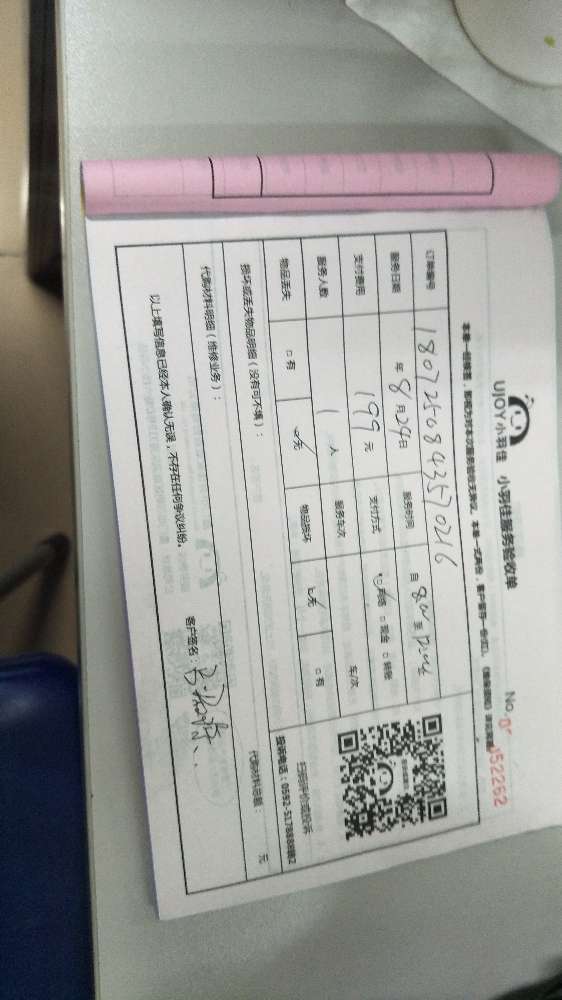 UJOY小羽佳 小羽佳服务验收单
No.0 052262
订单编号 180725084357026
服务日期 年 8 月 24 日 服务时间 自 至
支付费用 199 元 支付方式 ☑网络 □现金 □转账
服务人数 1 人 服务车次 车/次
物品丢失 □有 ☑无 物品损坏 ☑无 □有
扫码评价或投诉
投诉电话：0592-5178888转2
损坏或丢失物品明细（没有可不填）：
代购材料明细（维修业务）： 代购材料总额： 元
以上填写信息已经本人确认无误，不存在任何争议纠纷。
客户签名：